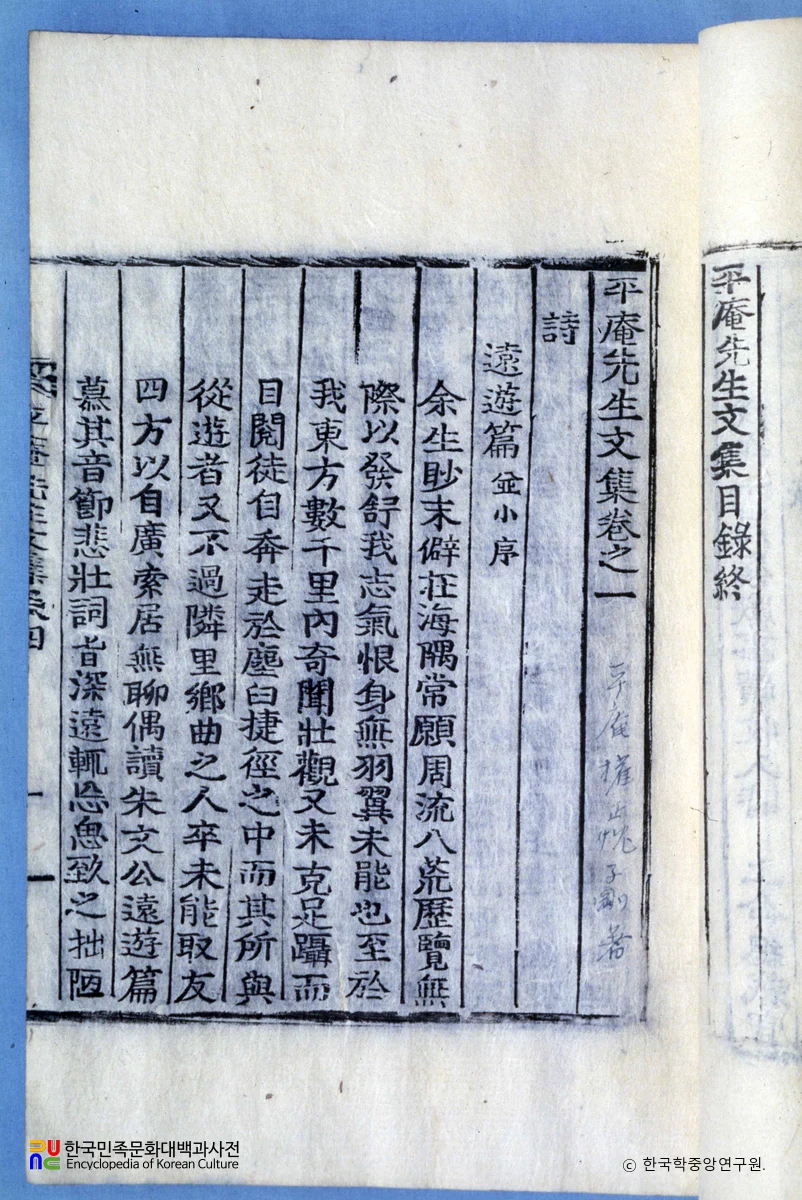 平庵先生文集目錄終
平庵先生文集卷之一
平庵 權正忱 子剛 著
詩
遠遊篇 並小序
余生眇末僻在海隅常願周流八荒歷覽無
際以發舒我志氣恨身無羽翼未能也至於
我東方數千里內奇聞壯觀又未克足躡而
目閱徒自奔走於塵臼捷徑之中而其所與
從遊者又不過隣里鄉曲之人卒未能取友
四方以自廣索居無聊偶讀朱文公遠遊篇
慕其音節悲壯詞旨深遠輒忘思致之拙陋
한국민족문화대백과사전
Encyclopedia of Korean Culture
ⓒ 한국학중앙연구원.